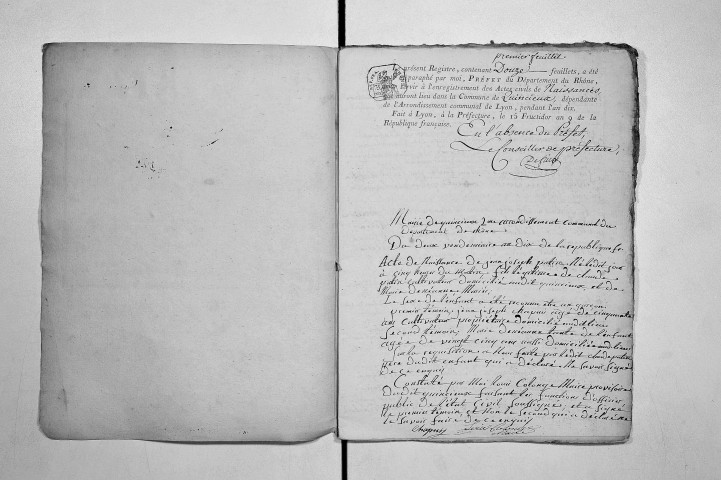 premier feuillet
Le présent Registre, contenant Douze feuillets, a été
paraphé par moi, PRÉFET du Département du Rhône,
servir à l'enregistrement des Actes civils de Naissances,
qui auront lieu dans la Commune de Quincieux, dépendante
de l'Arrondissement communal de Lyon, pendant l'an dix.
Fait à Lyon, à la Préfecture, le 15 Fructidor an 9 de la
République française.
En l'absence du Préfet,
Le Conseiller de préfecture,
Mairie de quincieux arrondissement communal du
Departement du Rhône
Du deux vendemiaire an dix de la republique fr.
Acte de Naissance de jean joseph né ledit jour
à cinq heures du matin, fils légitime de claude
cultivateur domicilié audit quincieux, et de
Marie
Le sexe de l'enfant a été reconnu être un garçon
premier témoin, jean joseph chapuy agé de cinquante
ans cultivateur propriétaire domicilié audit lieu
second témoin, Marie tante de l'enfant
agée de vingt cinq ans aussi domiciliée audit lieu
sur la requisition à Nous faite par ledit claude
père dudit enfant qui a déclaré ne savoir signer
de ce enquis
Constaté par Moi Colonge Maire provisoire
dudit quincieux faisant les fonctions d'officier
public de l'état Civil soussigné, et a signé
le premier témoin et Non le second qui a déclaré ne
le savoir faire de ce enquis
Chapuy